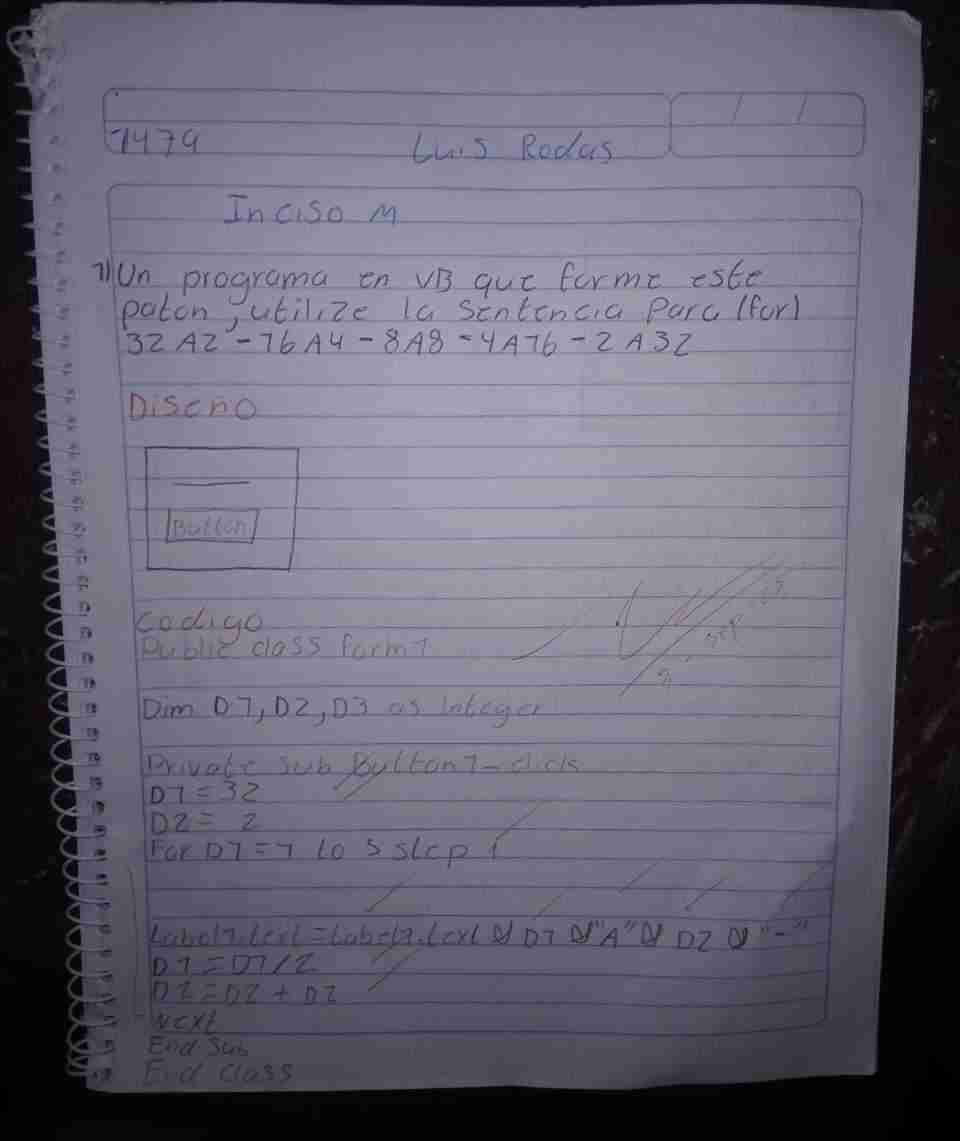 1479 Luis Rodas
Inciso M
1) Un programa en VB que forme este
paton, utilize la Sentencia Para (for)
32A2 - 16A4 - 8A8 - 4A16 - 2A32
Diseño
Button
Codigo
Public class form1
Dim D1, D2, D3 as integer
Private Sub Button1_click
D1 = 32
D2 = 2
For D1 = 1 to 5 step 1
Label1.text = Label1.text & D1 & "A" & D2 & "-"
D1 = D1/2
D2 = D2 + D2
Next
End Sub
End class